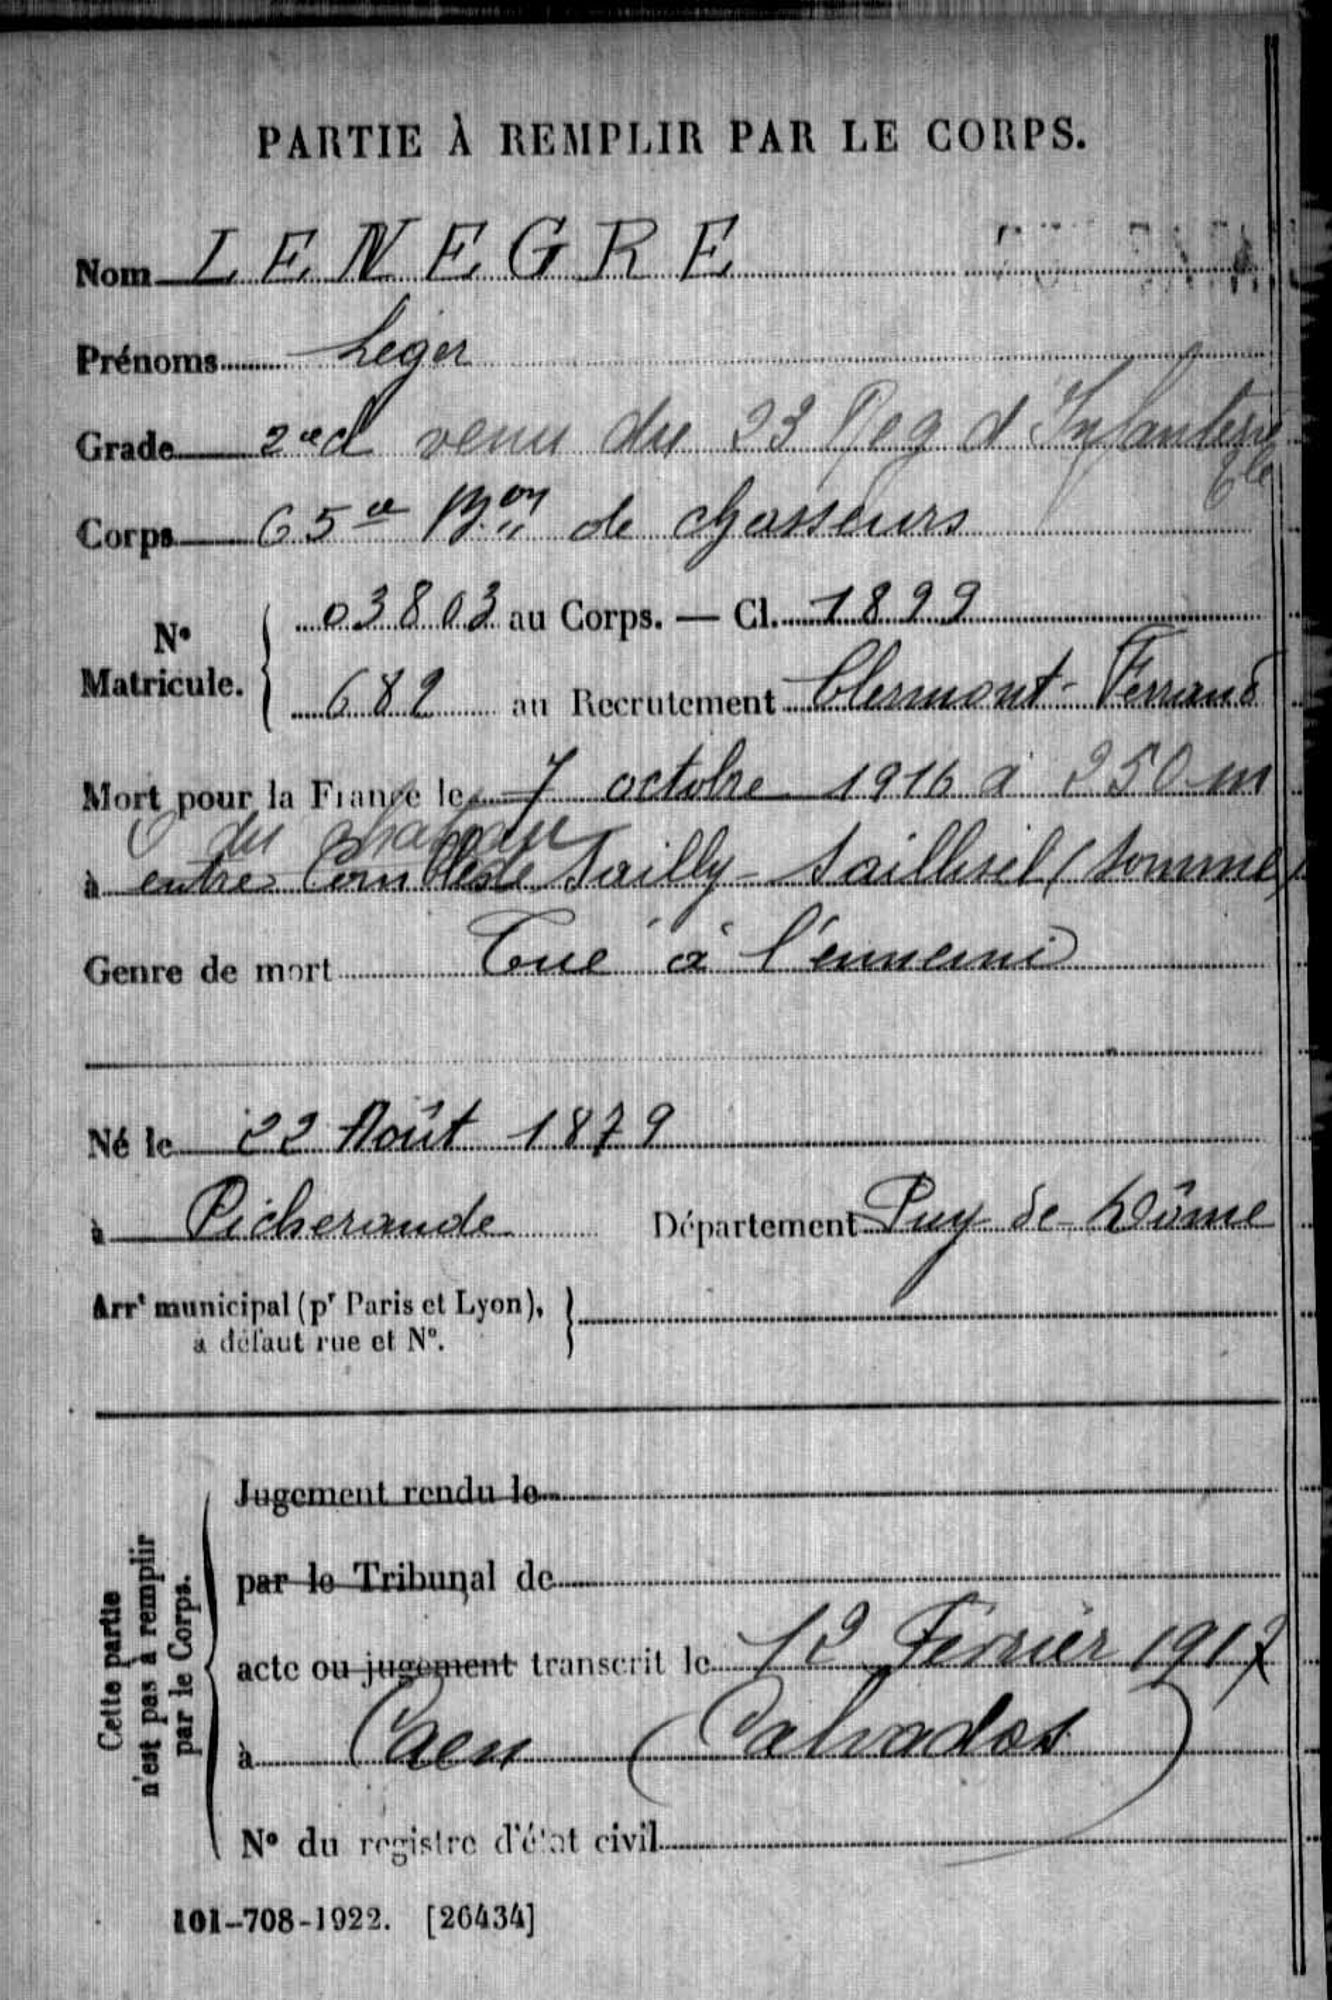 PARTIE À REMPLIR PAR LE CORPS.
Nom LENEGRE
Prénoms Léger
Grade 2e cl venu du 23 Reg d'Infanterie Cle
Corps 65e Bon de chasseurs
No Matricule. { 03803 au Corps. — Cl. 1899
682 au Recrutement Clermont-Ferrand
Mort pour la France le 7 octobre 1916 à 250 m
O du chateau
à entre Combles de Sailly-Saillisel (Somme)
Genre de mort Tué à l'ennemi
Né le 22 Août 1879
à Picherande Département Puy de Dôme
Arrt municipal (pr Paris et Lyon), }
à défaut rue et No.
Cette partie
n'est pas à remplir
par le Corps.
Jugement rendu le
par le Tribunal de
acte ou jugement transcrit le 12 Fevrier 1917
à Caen (Calvados)
No du registre d'état civil
101-708-1922. [26434]